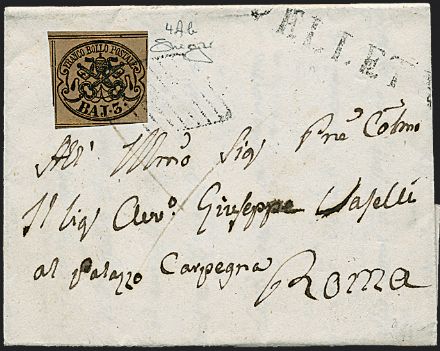 4Ab
FRANCO BOLLO POSTALE
BAJ. 3.
VELLETRI
All' Illmo Sig Pne Colmo
Il Sig Avvo. Giuseppe Vaselli
al Palazzo Carpegna
Roma